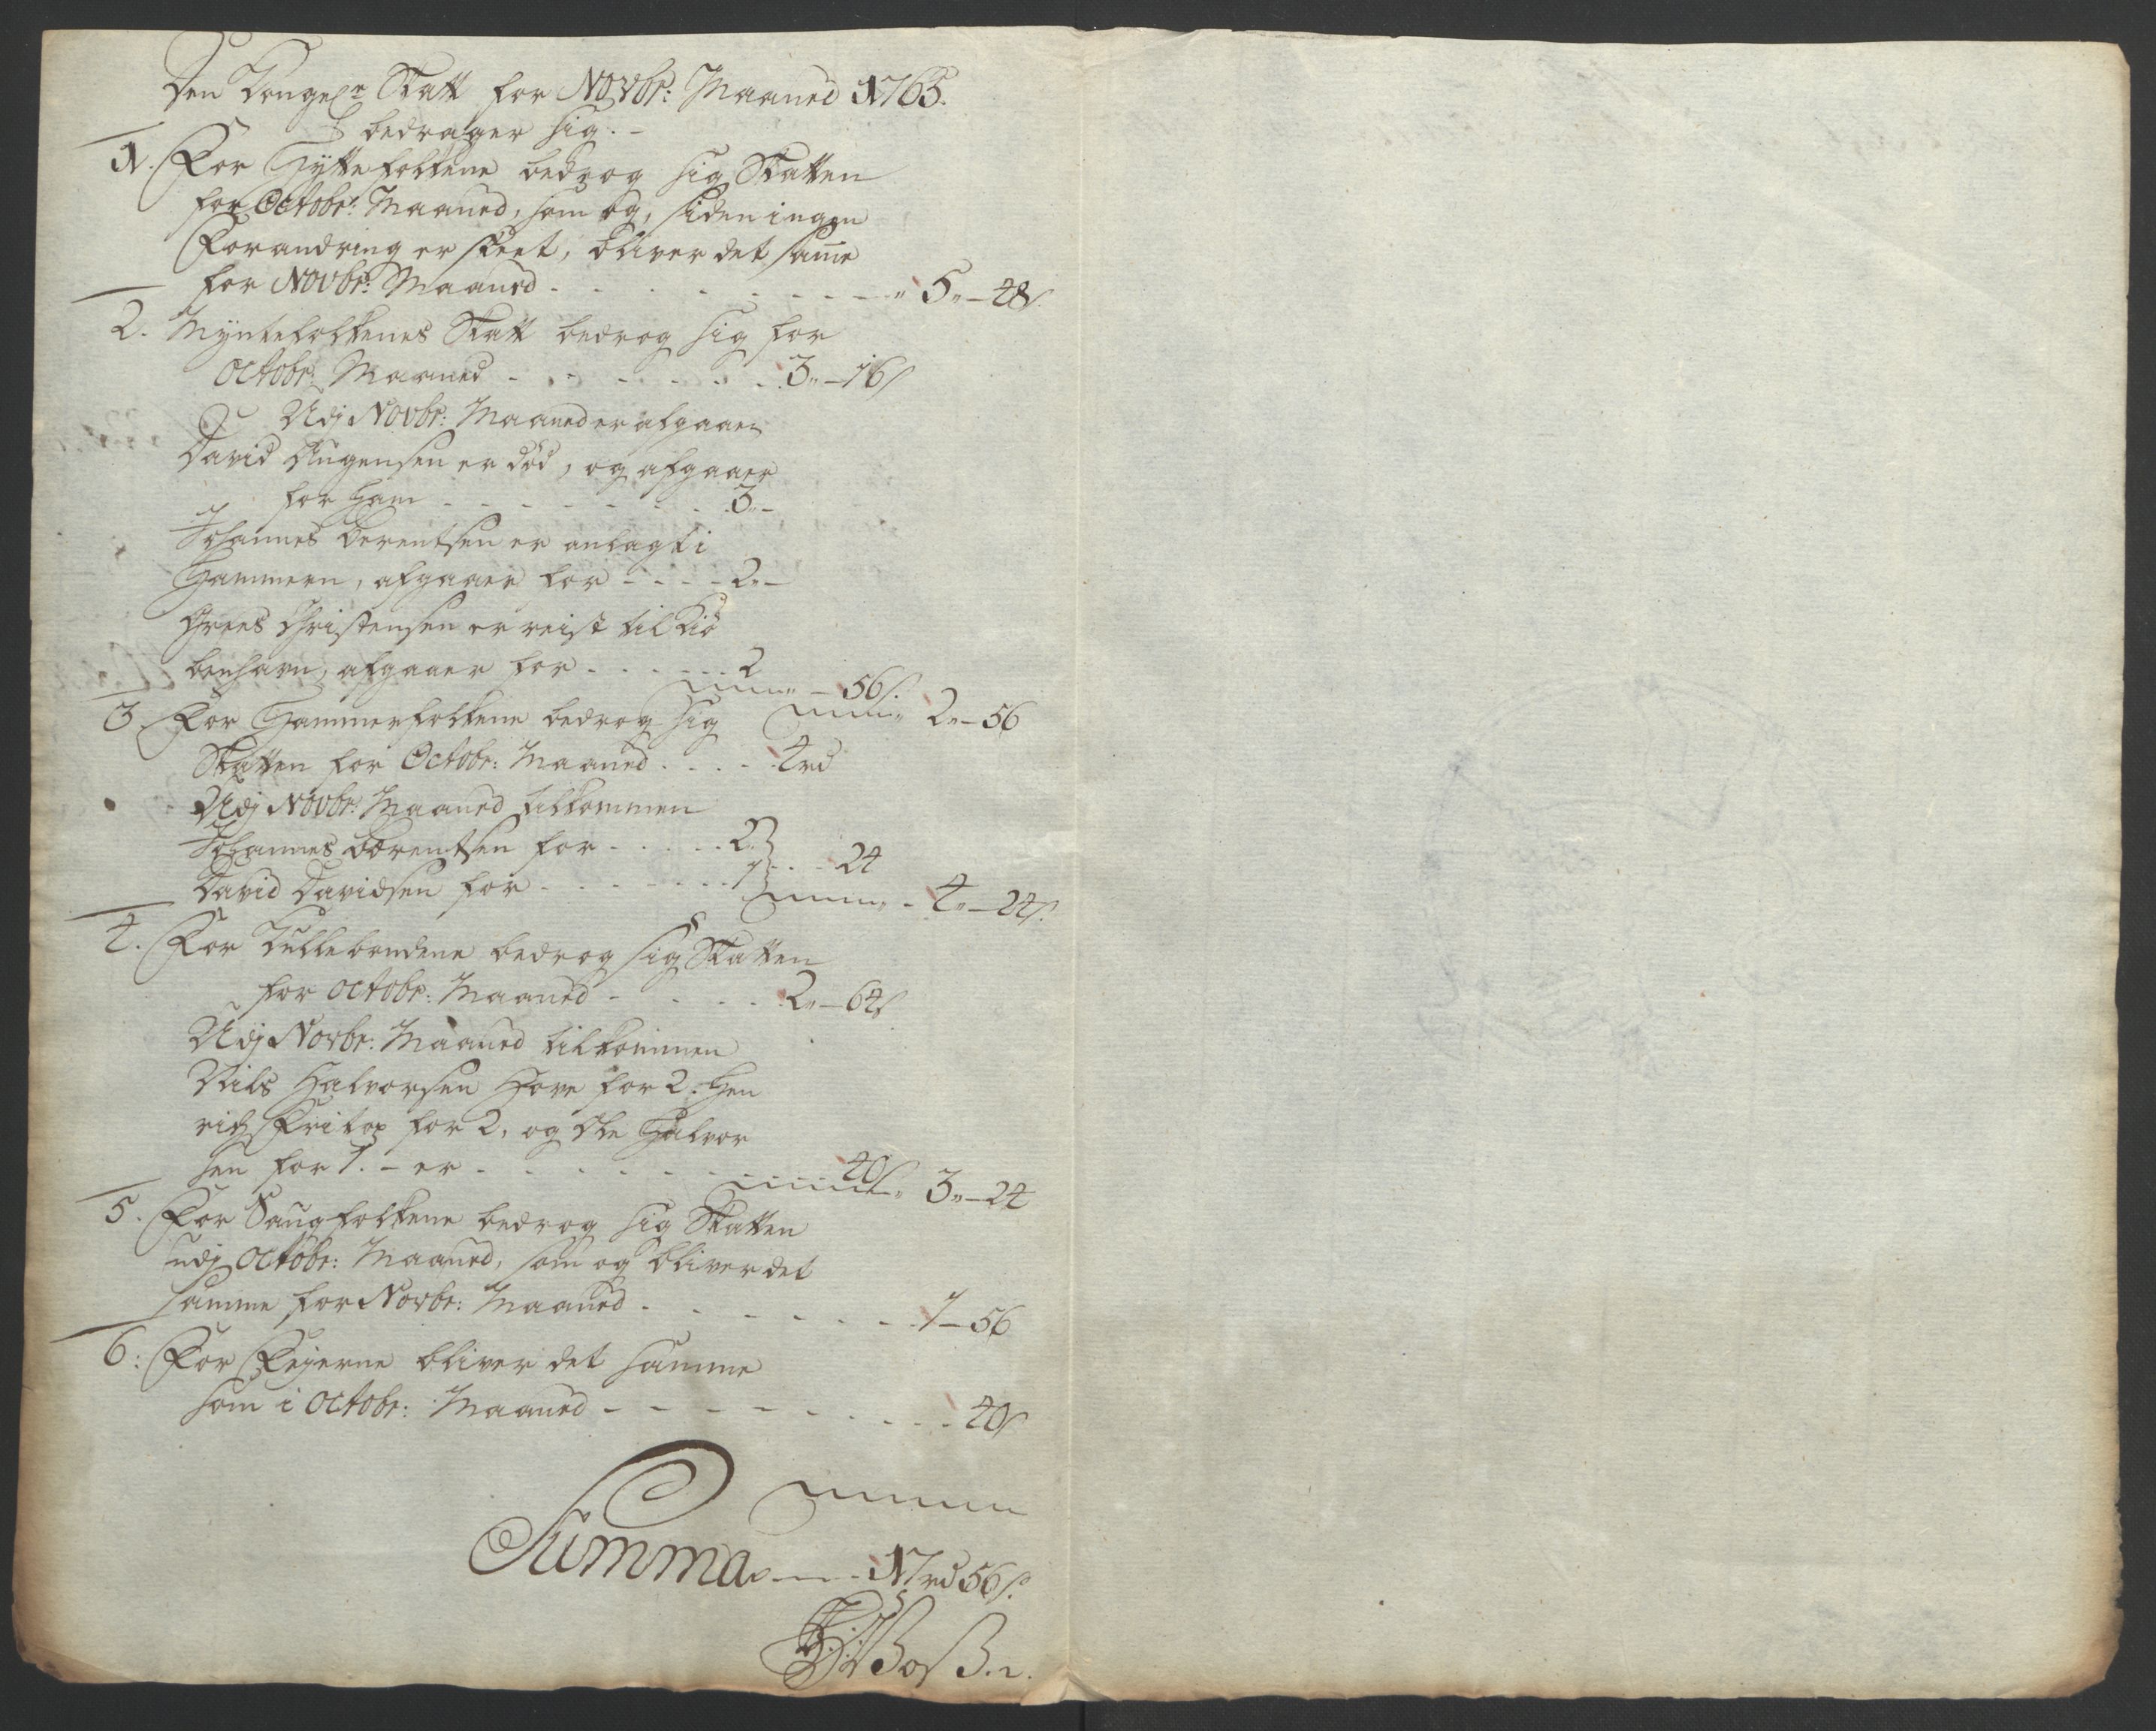 Den Kongel: Skatt for Novbr: Maaned 1763.
bedrager sig. -
1. For Hyttefolkene bedrog sig Skatten
for Octobr: Maaned, som og, siden ingen
Forandring er skeet, bliver det same
for Novbr: Maaned - - - - - - - - - " 5 " - 48 s.
2. Myntefolkenes Skatt bedrog sig for
Octobr: Maaned - - - - - - - 3 " - 16 s
Udj Novbr: Maaned er afgaaen
David Augensen er död, og afgaaer
for ham - - - - - - - - 3 " -
Johannes Berentsen er anlagt i
Hammern, afgaaer for - - - - 2 " -
Christensen er reist til Kiö
benhavn, afgaaer for - - - - - 2
" - 56 s.
" 2 " - 56
3. For Hammerfolkene bedrog sig
Skatten for Octobr: Maaned - - - - 4 rd
Udj Novbr: Maaned tilkommen
Johannes Bærentsen for - - - - - 2
David Davidsen for - - - - - - - 1 - - - 24
" - 4 " - 24 s.
4. For Kullebrndene bedrog sig Skatten
for Octobr: Maaned - - - - - 2 " - 64 s
Udj Novbr: Maaned tilkommen
Nils Halvorsen Hove for 2. Hen
rich for 2, og Ole Halvor
sen for 1. - er - - - - - - - 40 s
" 3 " - 24
5. For Saugfolkene bedrog sig Skatten
udj Octobr: Maaned, som og bliver det
samme for Novbr: Maaned - - - - - - - 1 - 56
6: For Fejerne bliver det samme
som i Octobr: Maaned - - - - - - - - 40 s
Summa - - - 17 rd 56 s.